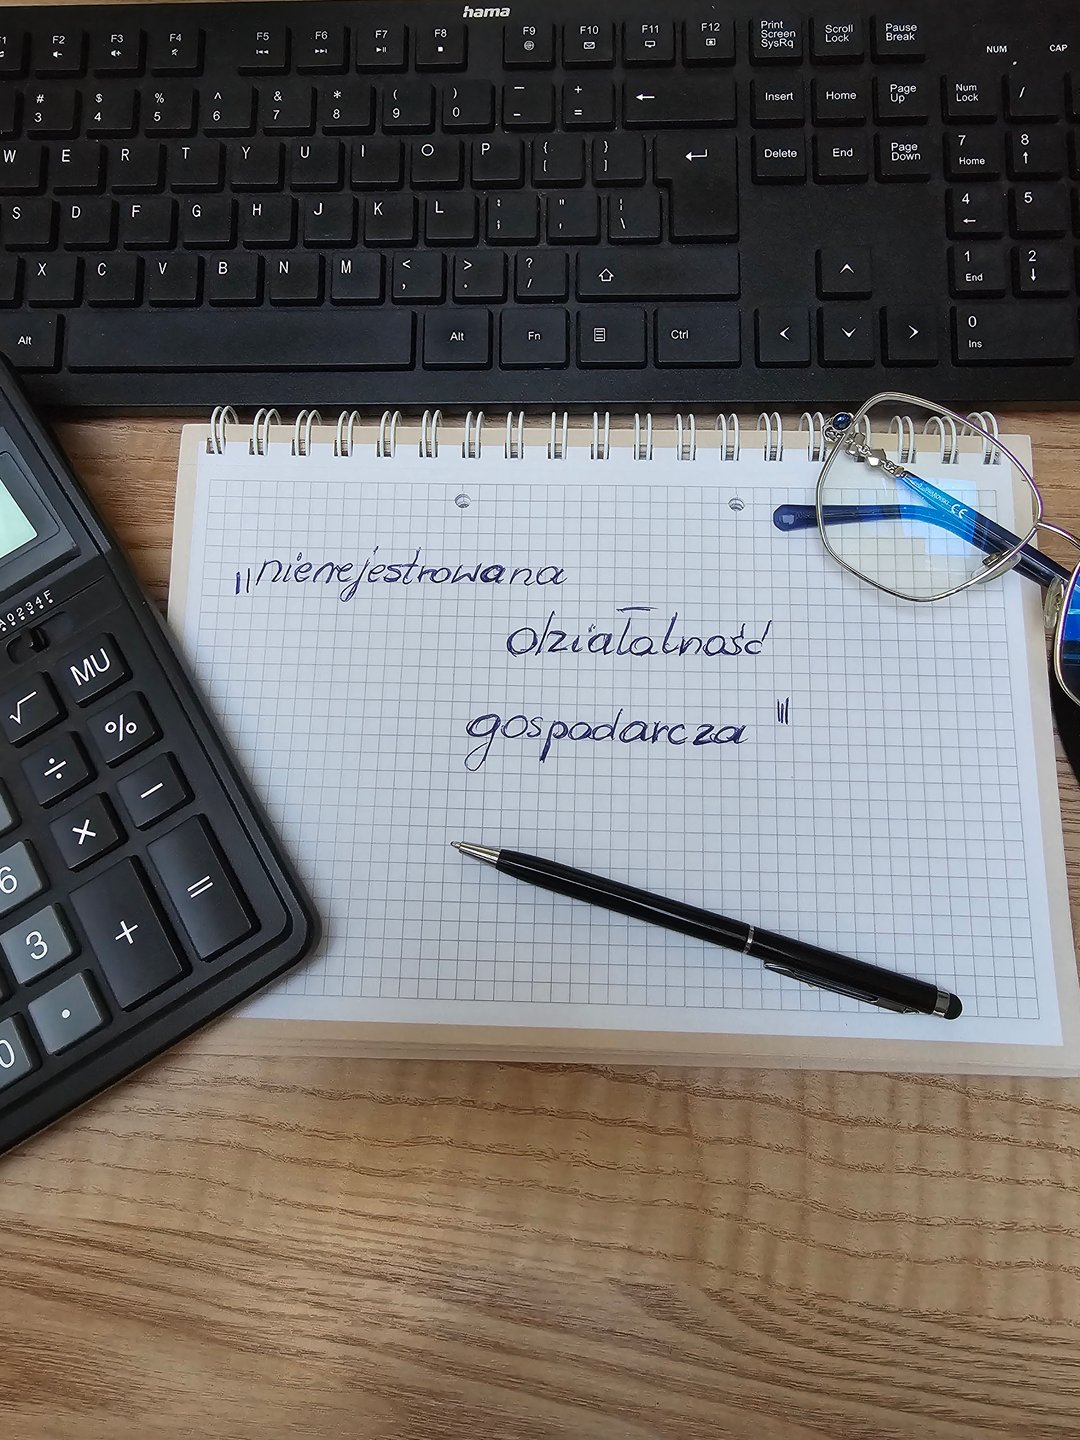 hama
F1 F2 F3 F4 F5 F6 F7 F8 F9 F10 F11 F12 Print Screen SysRq Scroll Lock Pause Break
NUM CAP
# 3 $ 4 % 5 ^ 6 & 7 * 8 ( 9 ) 0 — - + = ← Insert Home Page Up Num Lock /
W E R T Y U I O P { [ } ] Delete End Page Down 7 Home 8 ↑
S D F G H J K L : ; " ' ¦ \ 4 ← 5
X C V B N M < , > . ? / 1 End 2 ↓
Alt Alt Fn Ctrl 0 Ins
„nierejestrowana
działalność
gospodarcza"
CE
√ MU
÷ %
× −
6
3 + =
0 .